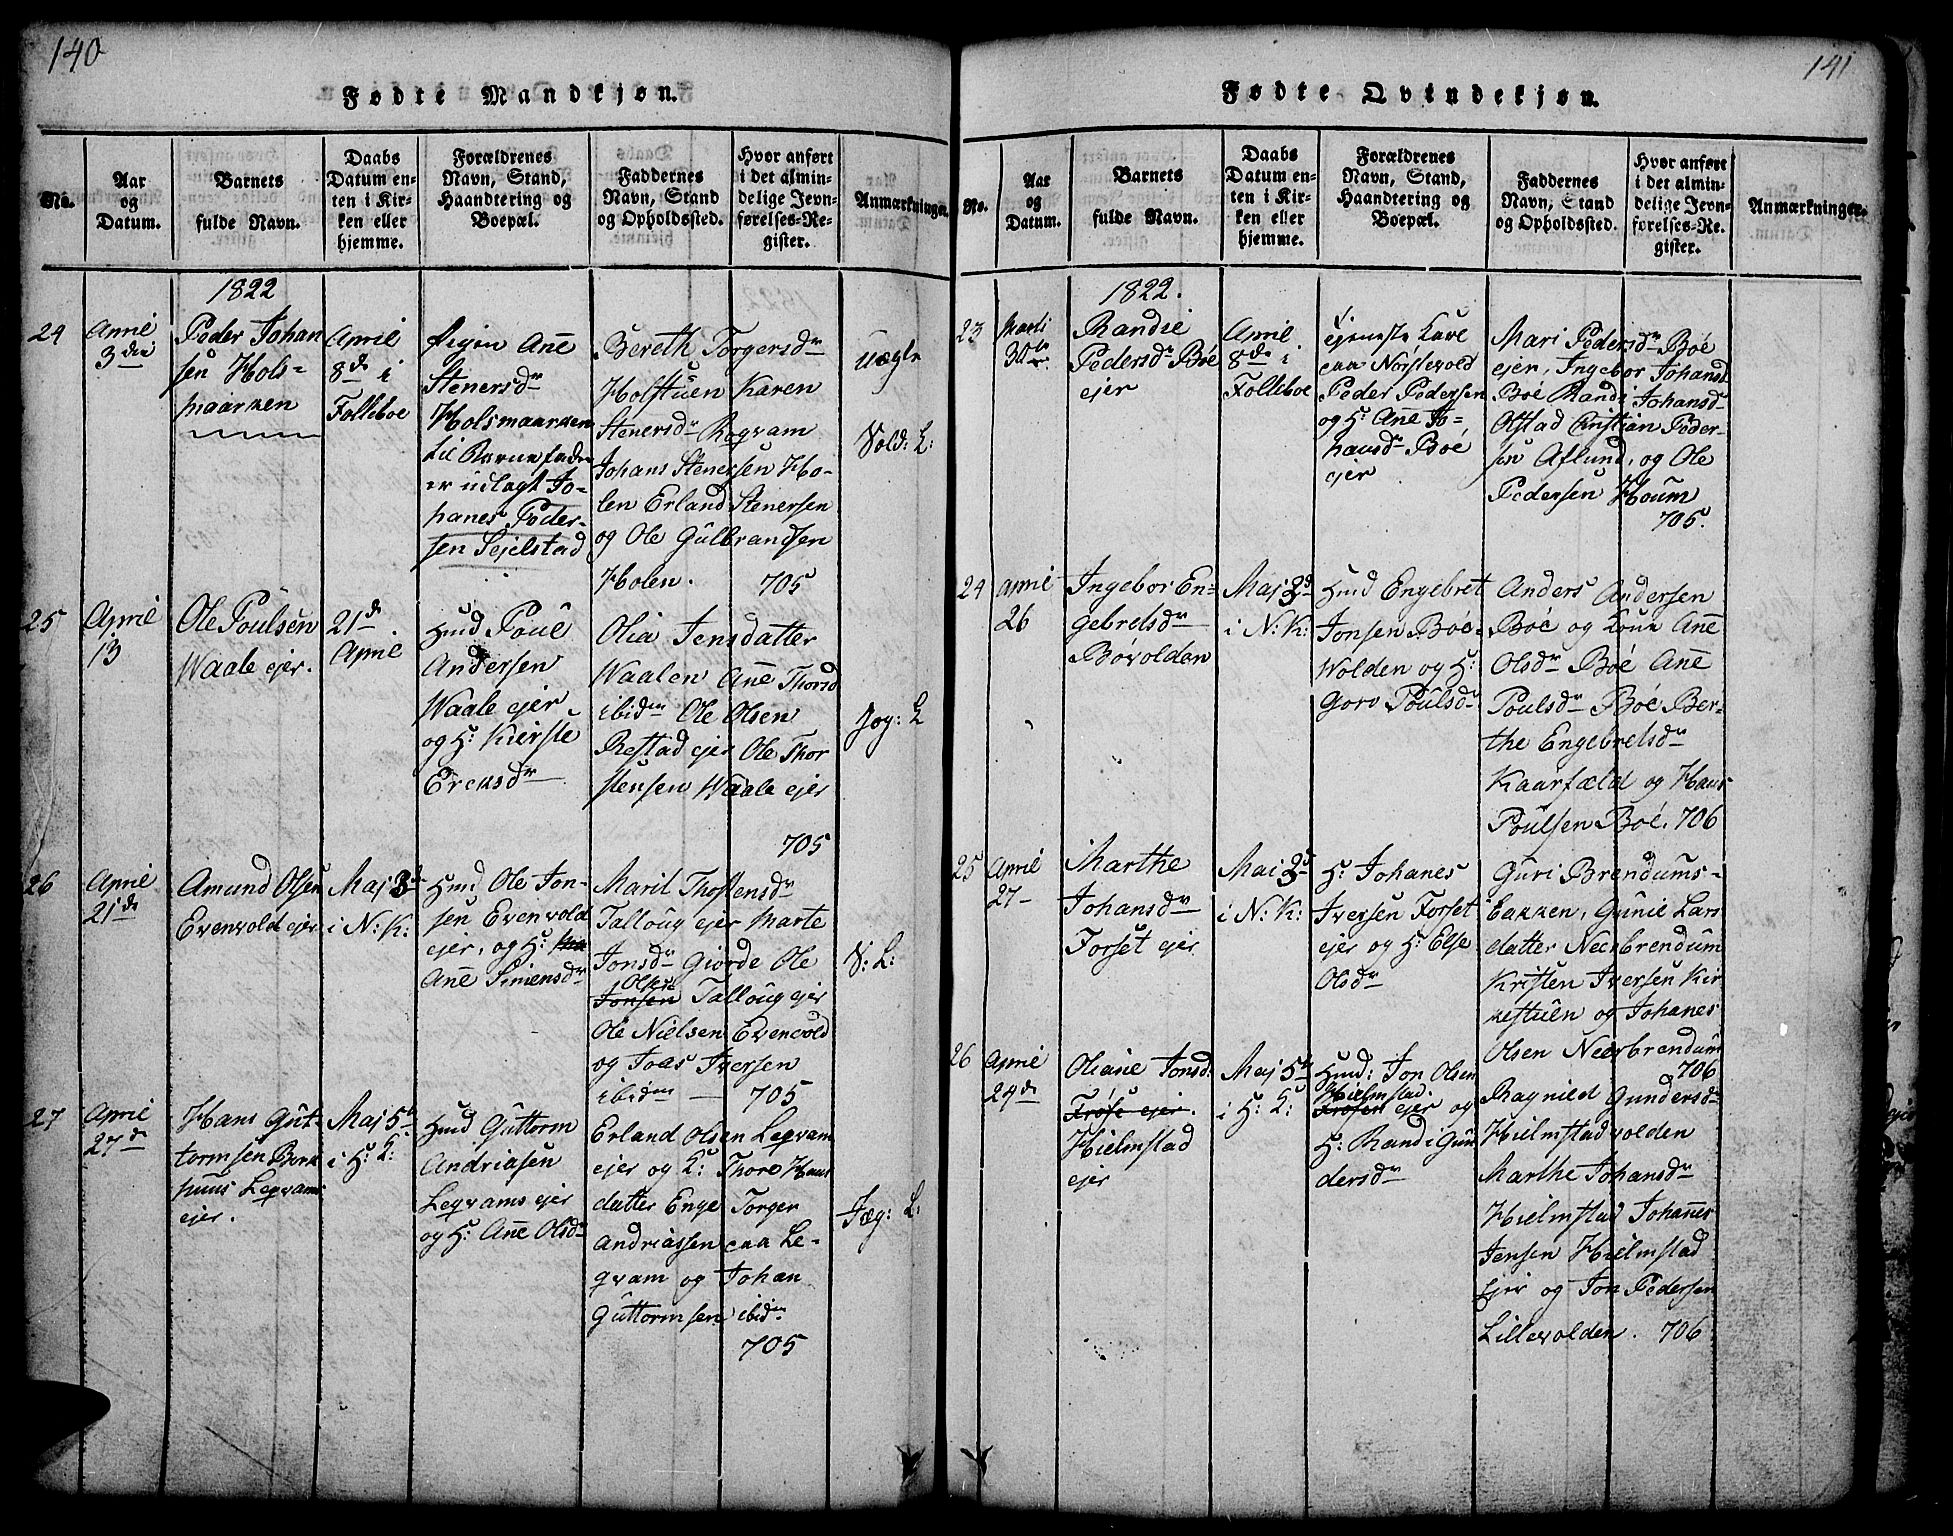 140
Fødte Mandkjøn.
No.
Aar
og
Datum.
Barnets
fulde Navn.
Daabs
Datum en-
ten i Kir-
ken eller
hjemme.
Forældrenes
Navn, Stand,
Haandtering og
Boepæl.
Faddernes
Navn, Stand
og Opholdssted.
Hvor anført
i det almin-
delige Jevn-
førelses-Re-
gister.
Anmærkninger.
1822
24
April
3die
Peder Johan
sen Hols-
maarken
April
8de i
Folleboe
Pigen Ane
Stenersdr
Holsmaarken
til Barnefader
er udlagt Jo-
hanes Peder-
sen Sejelstad
Bereth Torgersdr
Holstuen Karen
Stenersdr Rogvam
Johans Stenersen Ho-
len Erland Stenersen
og Ole Gulbrandsen
Holen. 705
uægte
Vold: L:
25
April
13
Ole Poulsen
Waale ejer.
21de
April
Hmd Poul
Andersen
Waale ejer
og H: Kierste
Ereksdr
Olia Jensdatter
Waalen Ane Thorsd
ibidm Ole Olsen
Restad ejer Ole Thor
stensen Waale ejer
705
Jog: L
26
April
21de
Amund Olsen
Evenvold ejer
Maj 3de
i N: K:
Hmd Ole Jon-
sen Evenvold
ejer, og H:
Ane Simensdr
Marit Thostensdr
Talloug ejer Marte
Jonsdr Giørde Ole
Olsen
Jonsen Talloug ejer
Ole Nielsen Evenvold
og Joas Iversen
ibidm 705
V: L:
27
April
27de
Hans Gut-
tormsen Bak
huus Leqvams
ejer.
Maj 5te
i H: L:
Hmd Guttorm
Andriasen
Leqvams ejer
og H: Ane Olsdr
Erland Olsen Leqvam
ejer og K: Thore Hans
datter Enge Torger
Andriassen paa Le-
qvam og Johan
Guttormsen ibidm
705
Jæg: L:
141
Fødte Qvindekjøn.
No.
Aar
og
Datum.
Barnets
fulde Navn.
Daabs
Datum en-
ten i Kir-
ken eller
hjemme.
Forældrenes
Navn, Stand,
Haandtering og
Boepæl.
Faddernes
Navn, Stand
og Opholdssted.
Hvor anført
i det almin-
delige Jevn-
førelses-Re-
gister.
Anmærkninger.
1822.
23
Marti
30te
Randie
Pedersdr Boe
ejer
April
8de i
Folleboe
tjeneste Karl
paa Norstevold
Peder Pedersen
og H: Ane Jo-
hansdr Boe
ejer
Mari Pedersdr Boe
ejer, Ingebor Johansd
Boe Randi Johansdr
Olstad Cristian Peder-
sen Aflund, og Ole
Pedersen Houm
705.
24
April
26
Ingebor En-
gebretsdr
Bovolden
Maj 3de
i N: K:
Hmd Engebret
Jonsen Boe-
Wolden og H:
Goro Poulsdr
Anders Andersen
Boe og Kone Ane
Olsdr Boe Ane
Poulsdr Boe Ber-
the Engebretsdr
Kaarfæld og Hans
Poulsen Boe. 706
25
April
27
Marthe
Johansdr
Forset ejer
Mai 3de
i N: K:
H: Johanes
Iversen Forset
ejer og H: Else
Olsdr
Guri Brendums-
bakken, Gunil Lars
datter Neerbrendum
Kristen Iversen Kir
kestuen og Johanes
Olsen Neerbrendum
706
26
April
24de
Oliane Jonsd:
Frøse ejer.
Hielmstad
ejer
Maj 5te
i H: K:
Hmd: Jon Olsen
Hielmstad.
Frøsen ejer og
H: Randi Gun
dersdr
Ragnild Gundersdr
Hielmstadvolden
Marthe Johansdr
Hielmstad Johanes
Jensen Hielmstad
Ejer og Jon Pedersen
Lillevolden. 706